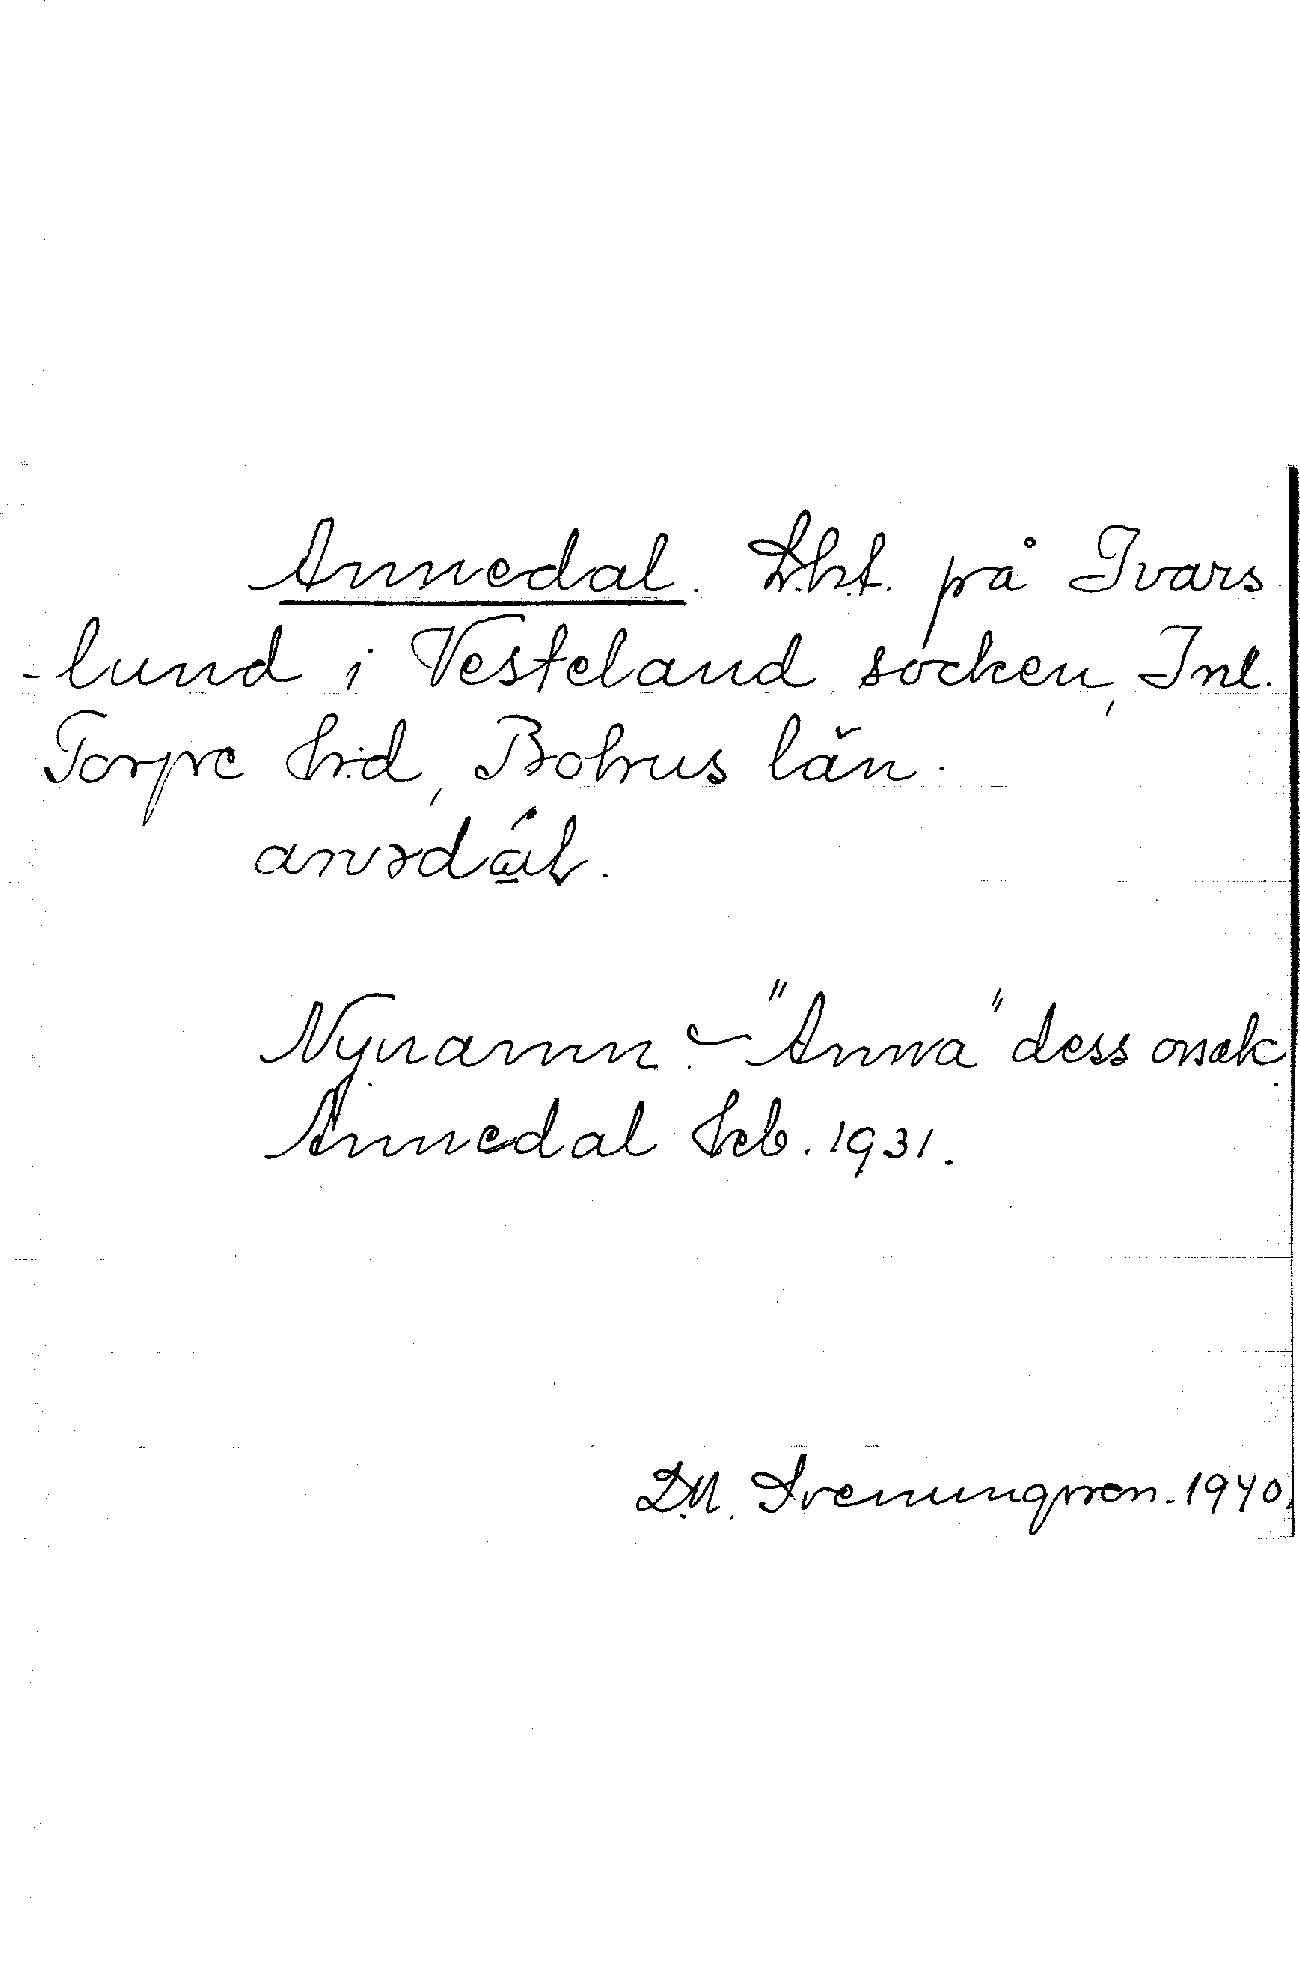 Annedal. Lht. på Ivars
-lund i Vesteland socken, Inl.
Torpe hrd, Bohus län.
Nynamn - "Anna" dess orsak
Annedal Hcb. 1931.
D.M. Sveningsson. 1940.